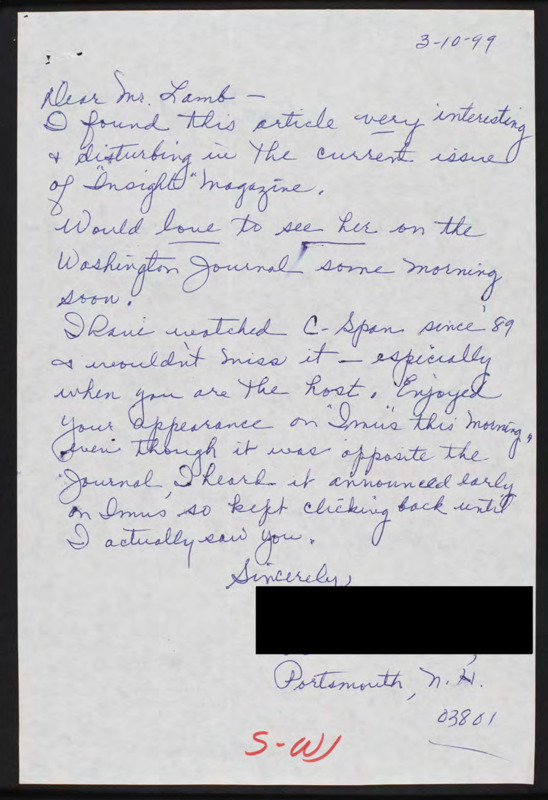 3-10-99
Dear Mr. Lamb —
I found this article very interesting
& disturbing in the current issue
of "Insight" Magazine.
Would love to see her on the
Washington Journal some morning
soon.
I have watched C-Span since '89
& wouldn't miss it — especially
when you are the host. Enjoyed
your appearance on "Imus" this morning,
even though it was opposite the
Journal, I heard it announced early
on Imus, so kept clicking back until
I actually saw you.
Sincerely,
Portsmouth, N.H.
03801
S-W